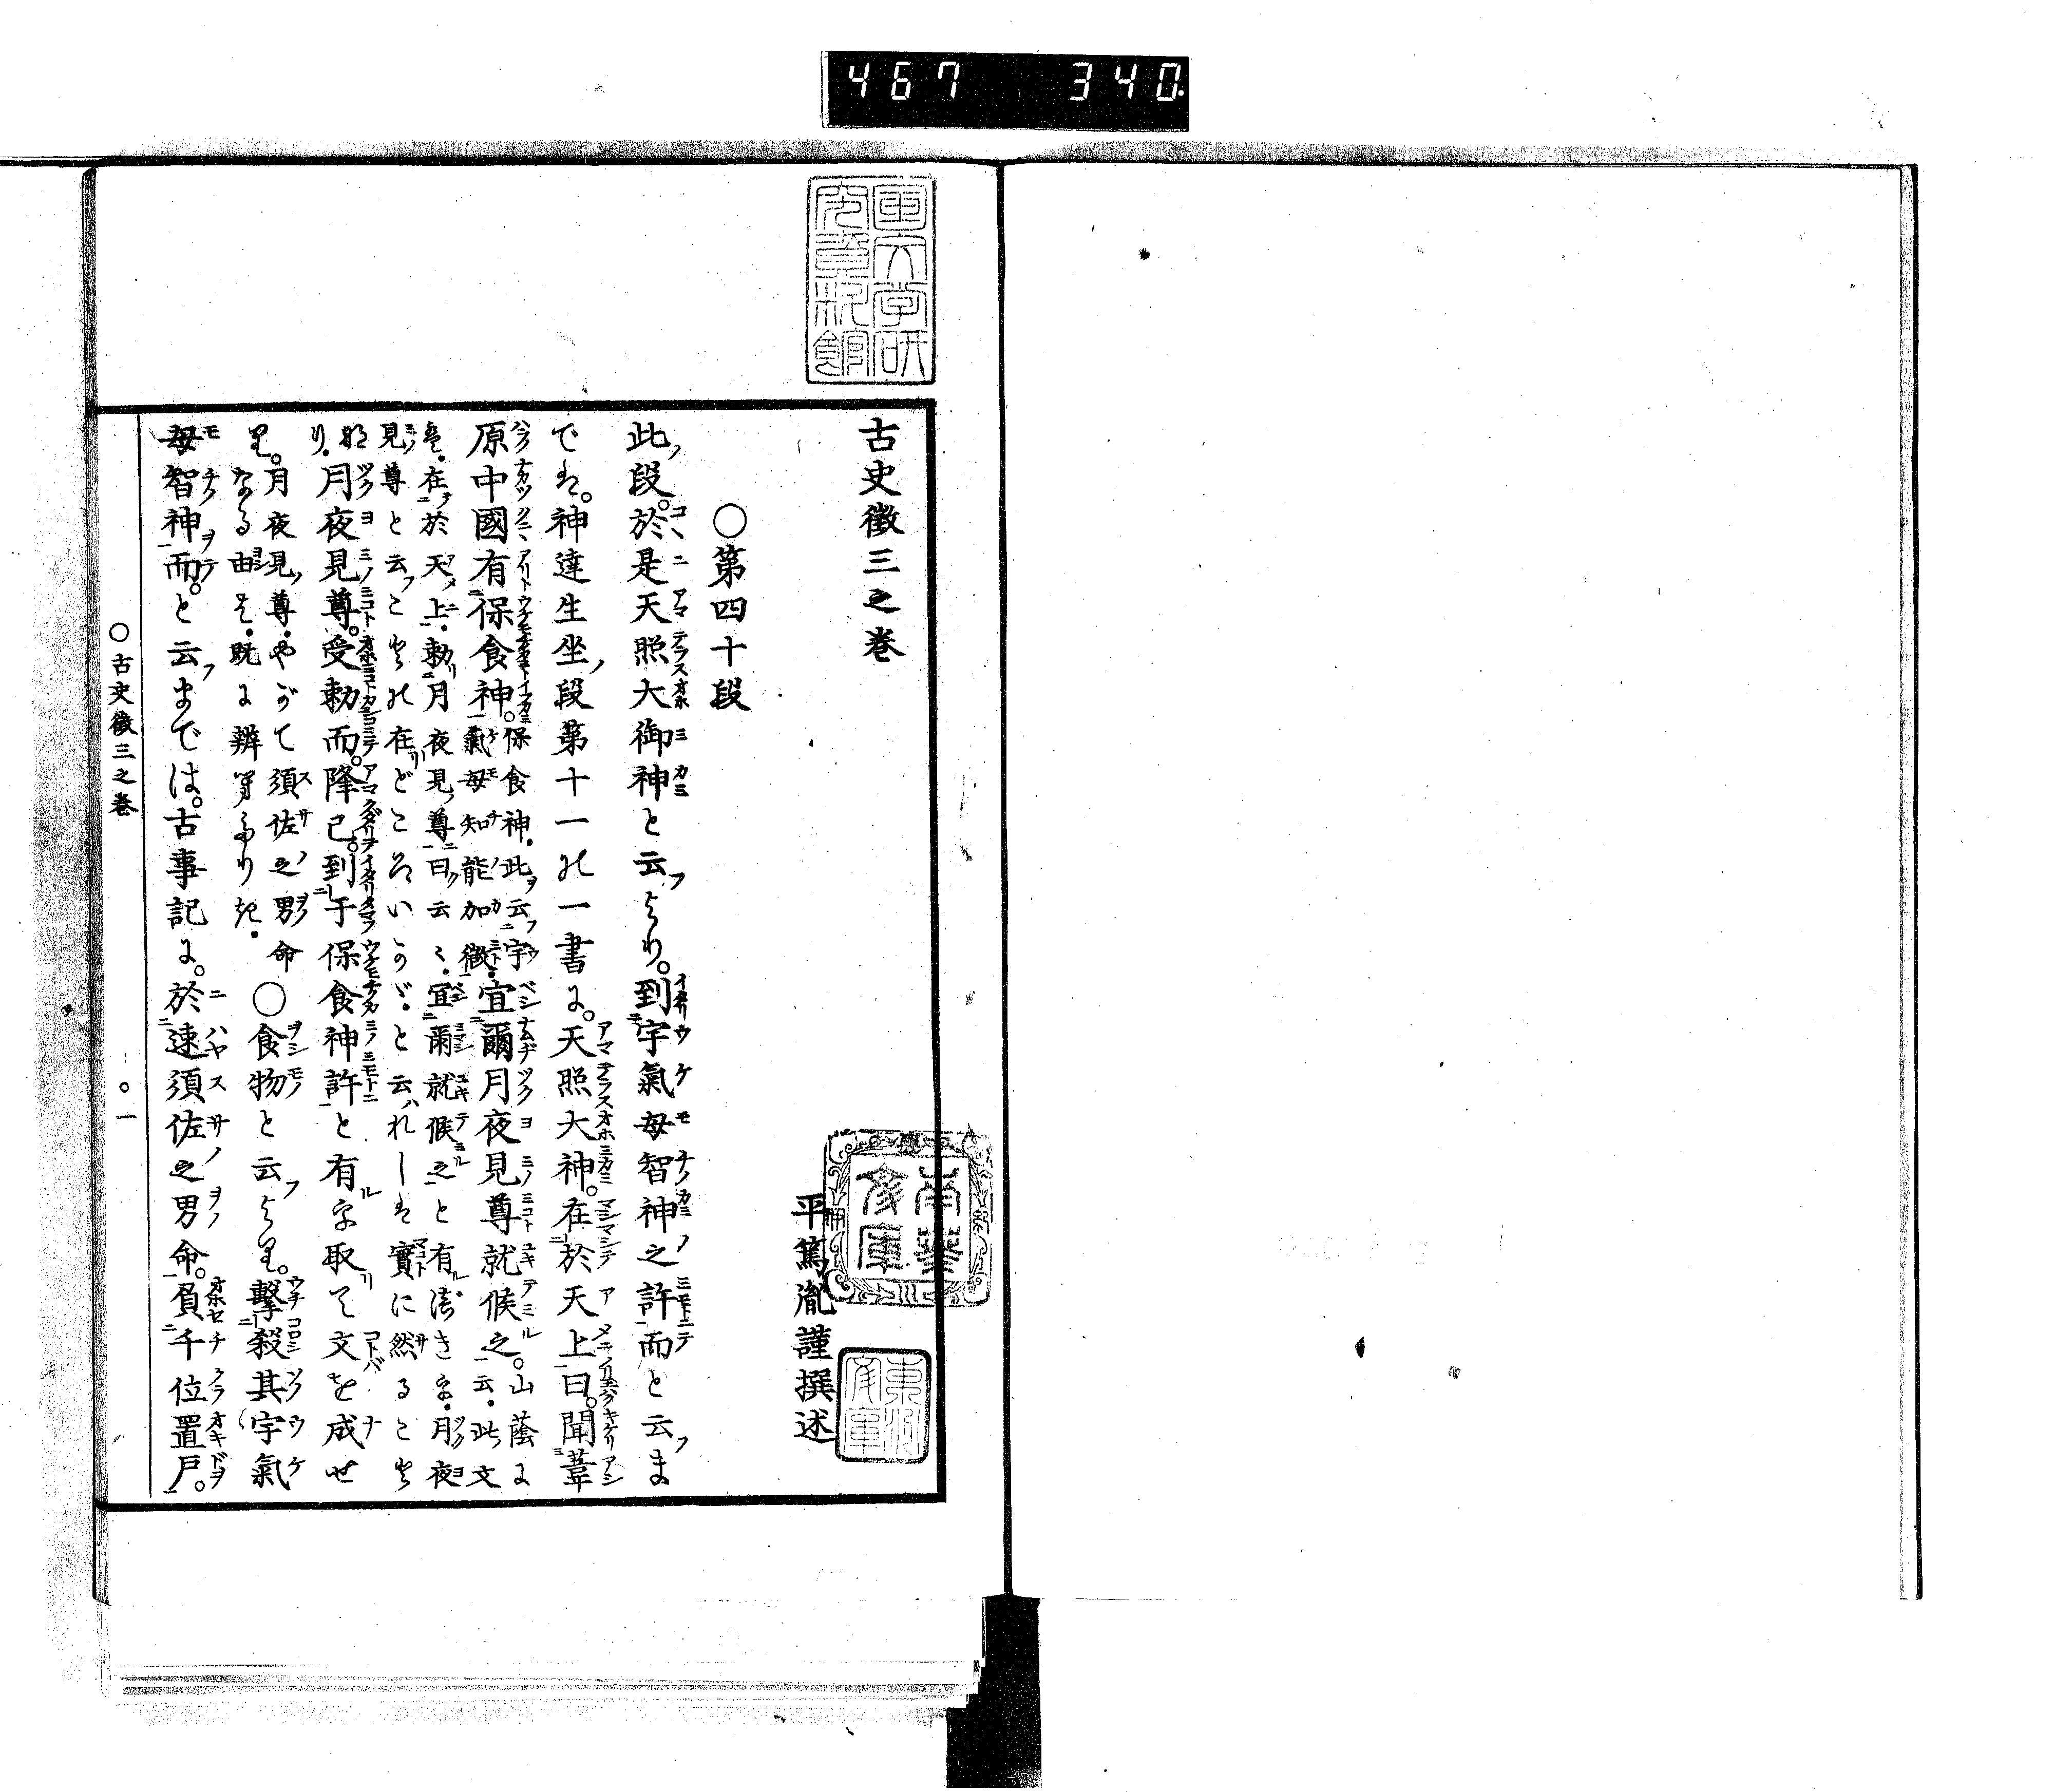 467 340
古史徴三之巻
平篤胤謹撰述
○第四十段
此段。於是天照大御神と云より。到宇氣母智神之許而と云ま
では。神達生坐段第十一の一書に。天照大神。在於天上曰。聞葦
原中國有保食神。
保食神。此云宇
氣母知能加微。
宜爾月夜見尊就候之。
山蔭に
云。此文
は。在於天上。勅月夜見尊曰云々。宜爾就候之と有べきを。月夜
見尊と云ことの在どころいかゞ。と云れしは實に然ること
なり。
月夜見尊。受勅而。降已。到于保食神許と有を取て文を成せ
り。
月夜見尊。やがて須佐之男命
なる由は。既に辨へたりき。
○食物と云より。撃殺其宇氣
母智神而。と云までは。古事記に。於速須佐之男命。負千位置戸。
○古史徴三之巻
○一